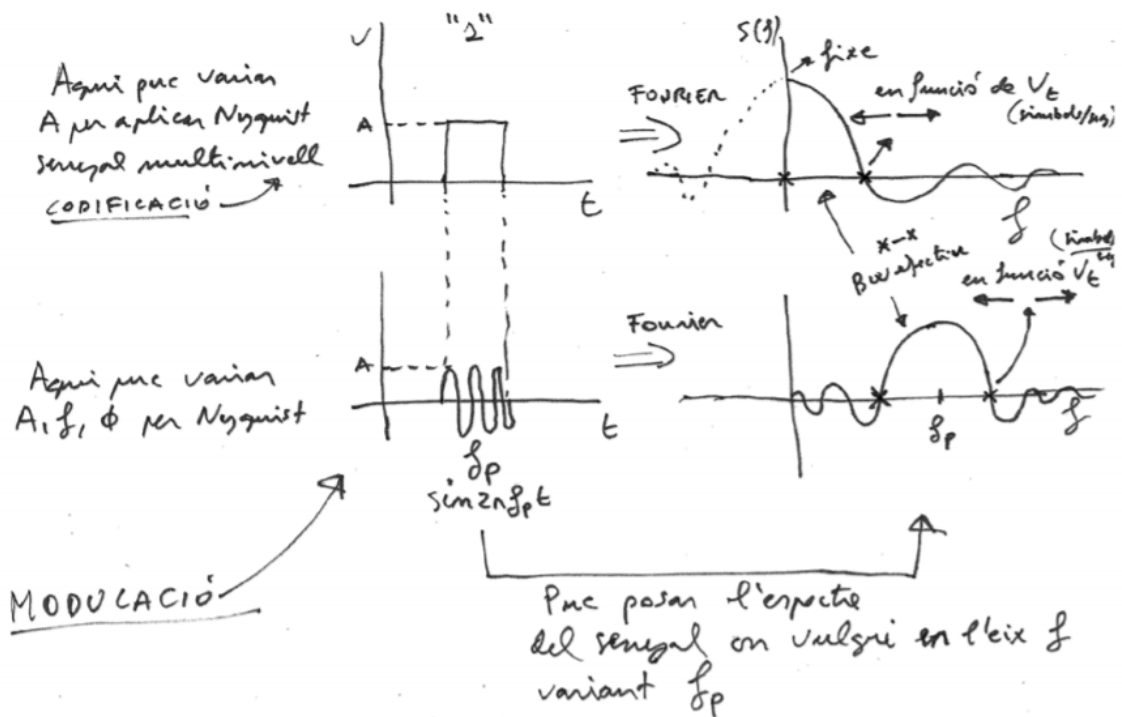 Aqui puc variar
A per aplicar Nyquist
senyal multinivell
CODIFICACIÓ
V
"1"
A
t
FOURIER
S(f)
fixe
en funció de Vt
(simbols/seg)
f
BW efectiu
x-x
Aqui puc variar
A, f, ϕ per Nyquist
A
t
fp
sin2πfpt
Fourier
en funció Vt
(simbols/seg
fp
f
MODULACIÓ
Puc posar l'espectre
del senyal on vulgui en l'eix f
variant fp